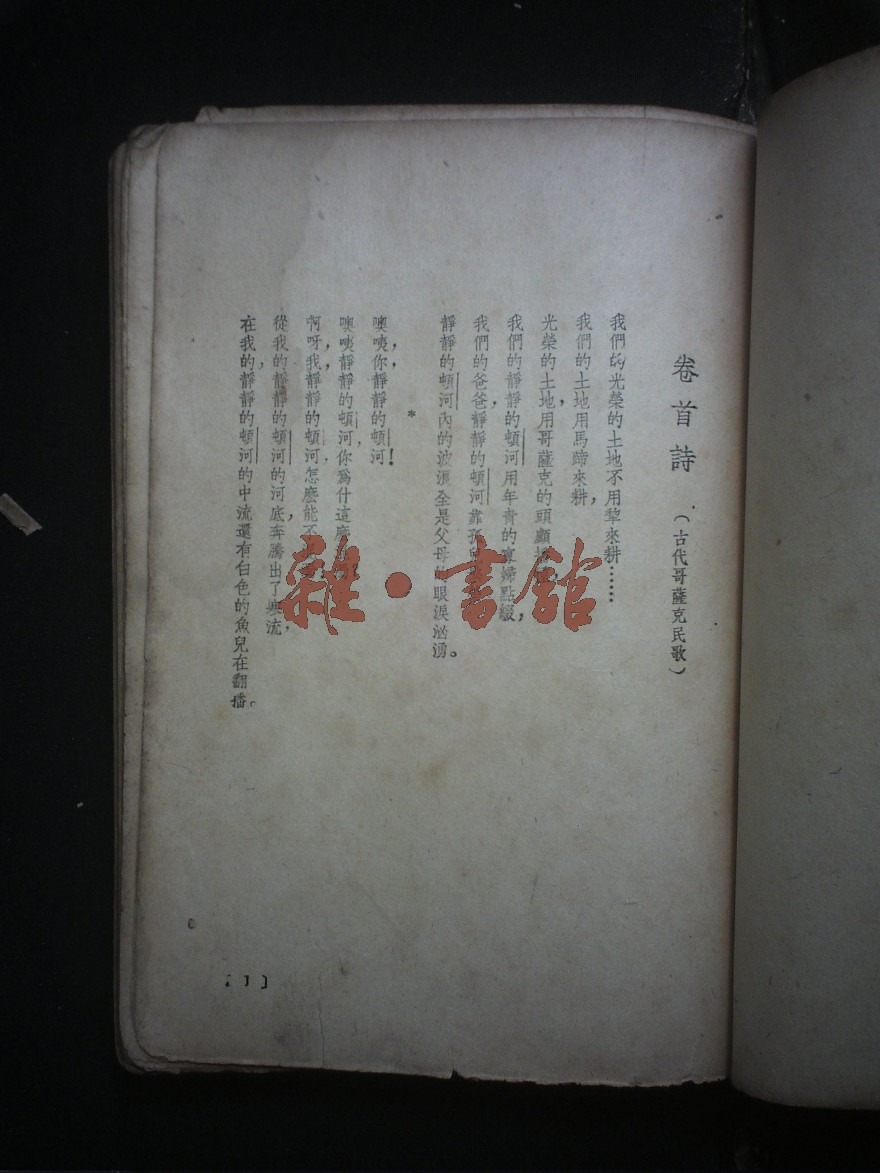 卷首詩（古代哥薩克民歌）
我們的光榮的土地不用犂來耕……
我們的土地用馬蹄來耕，
光榮的土地用哥薩克的頭顱
我們的靜靜的頓河用年青的寡婦點綴，
我們的爸爸，靜靜的頓河靠孤
靜靜的頓河內的波浪全是父母的眼淚洶湧。
*
噢，咦，你靜靜的頓河！
噢，咦，靜靜的頓河，你爲什這麽
啊，呀，我，靜靜的頓河，怎麽能不
從我的靜靜的頓河的河底，奔騰出了寒流，
在我的，靜靜的頓河的中流還有白色的魚兒在翻播。
雜·書館
〔1〕